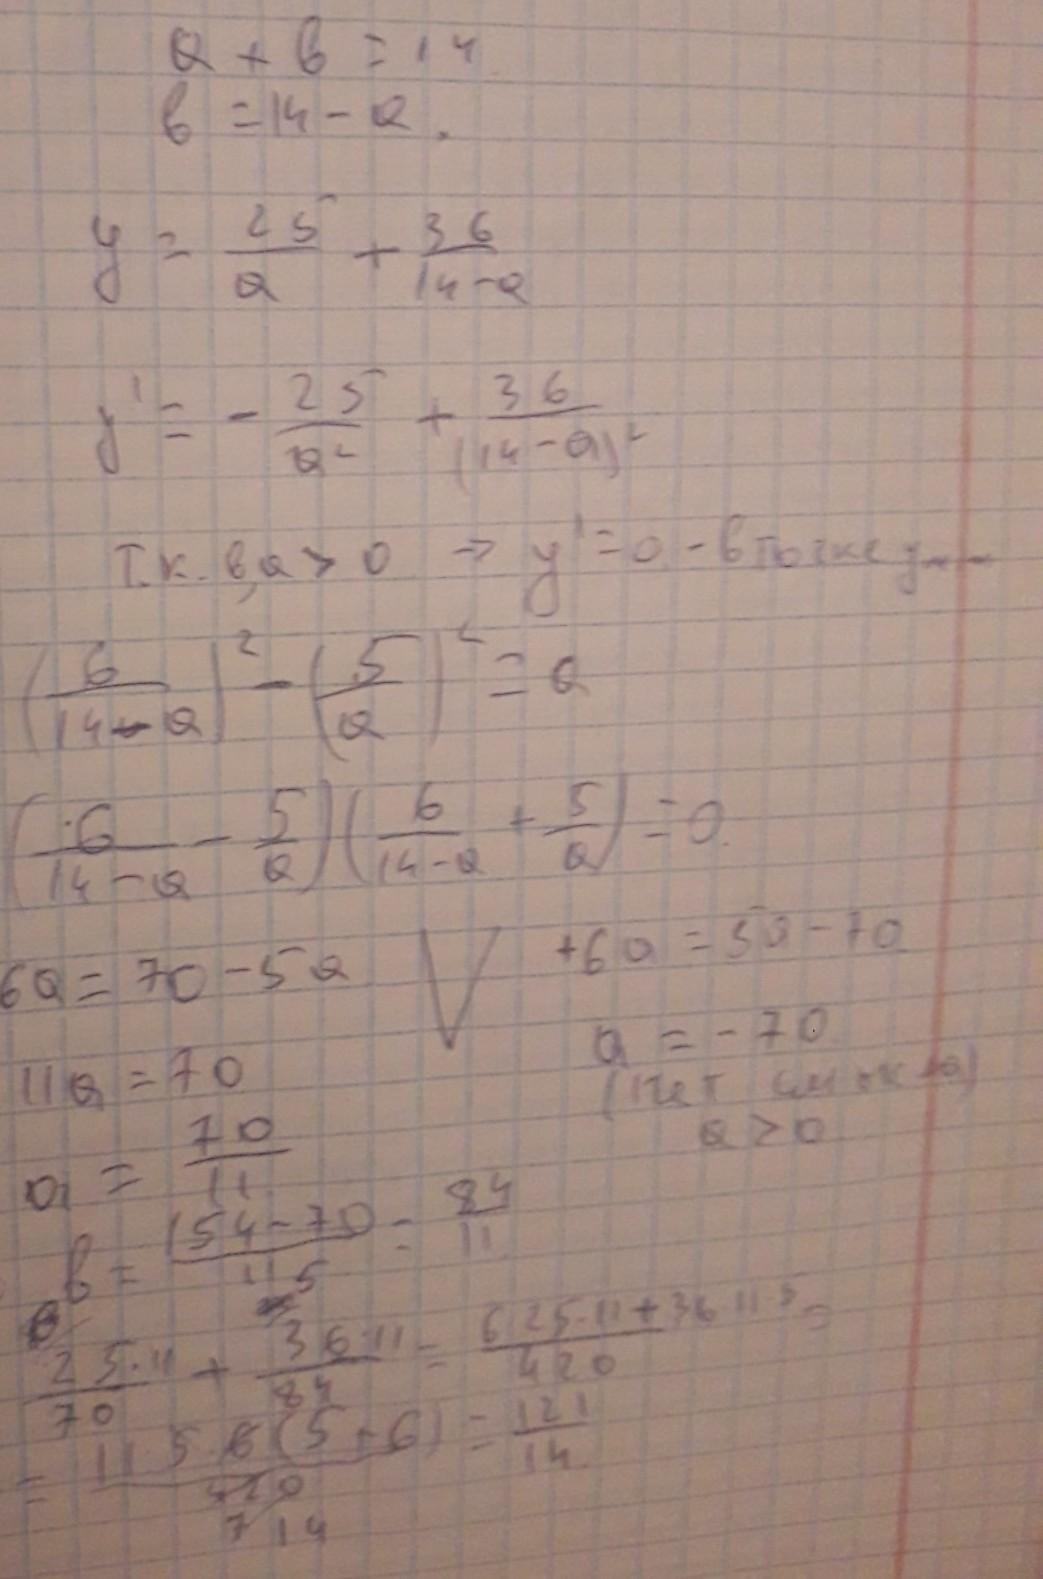 a + b = 14
b = 14 - a.
y = 25/a + 36/(14-a)
y' = - 25/a² + 36/(14-a)²
т.к. b,a > 0 → y' = 0 - в точке y
(6/(14-a))² - (5/a)² = 0
(6/(14-a) - 5/a)(6/(14-a) + 5/a) = 0.
6a = 70 - 5a V +6a = 5a - 70
11a = 70 a = -70
a = 70/11 (нет смысла) a > 0
b = (154-70)/11 = 84/11
25·11/70 + 36·11/84 = (6 25·11 + 36 11 5)/420 =
= 11 5 6 (5+6)/420 = 121/14
7 14